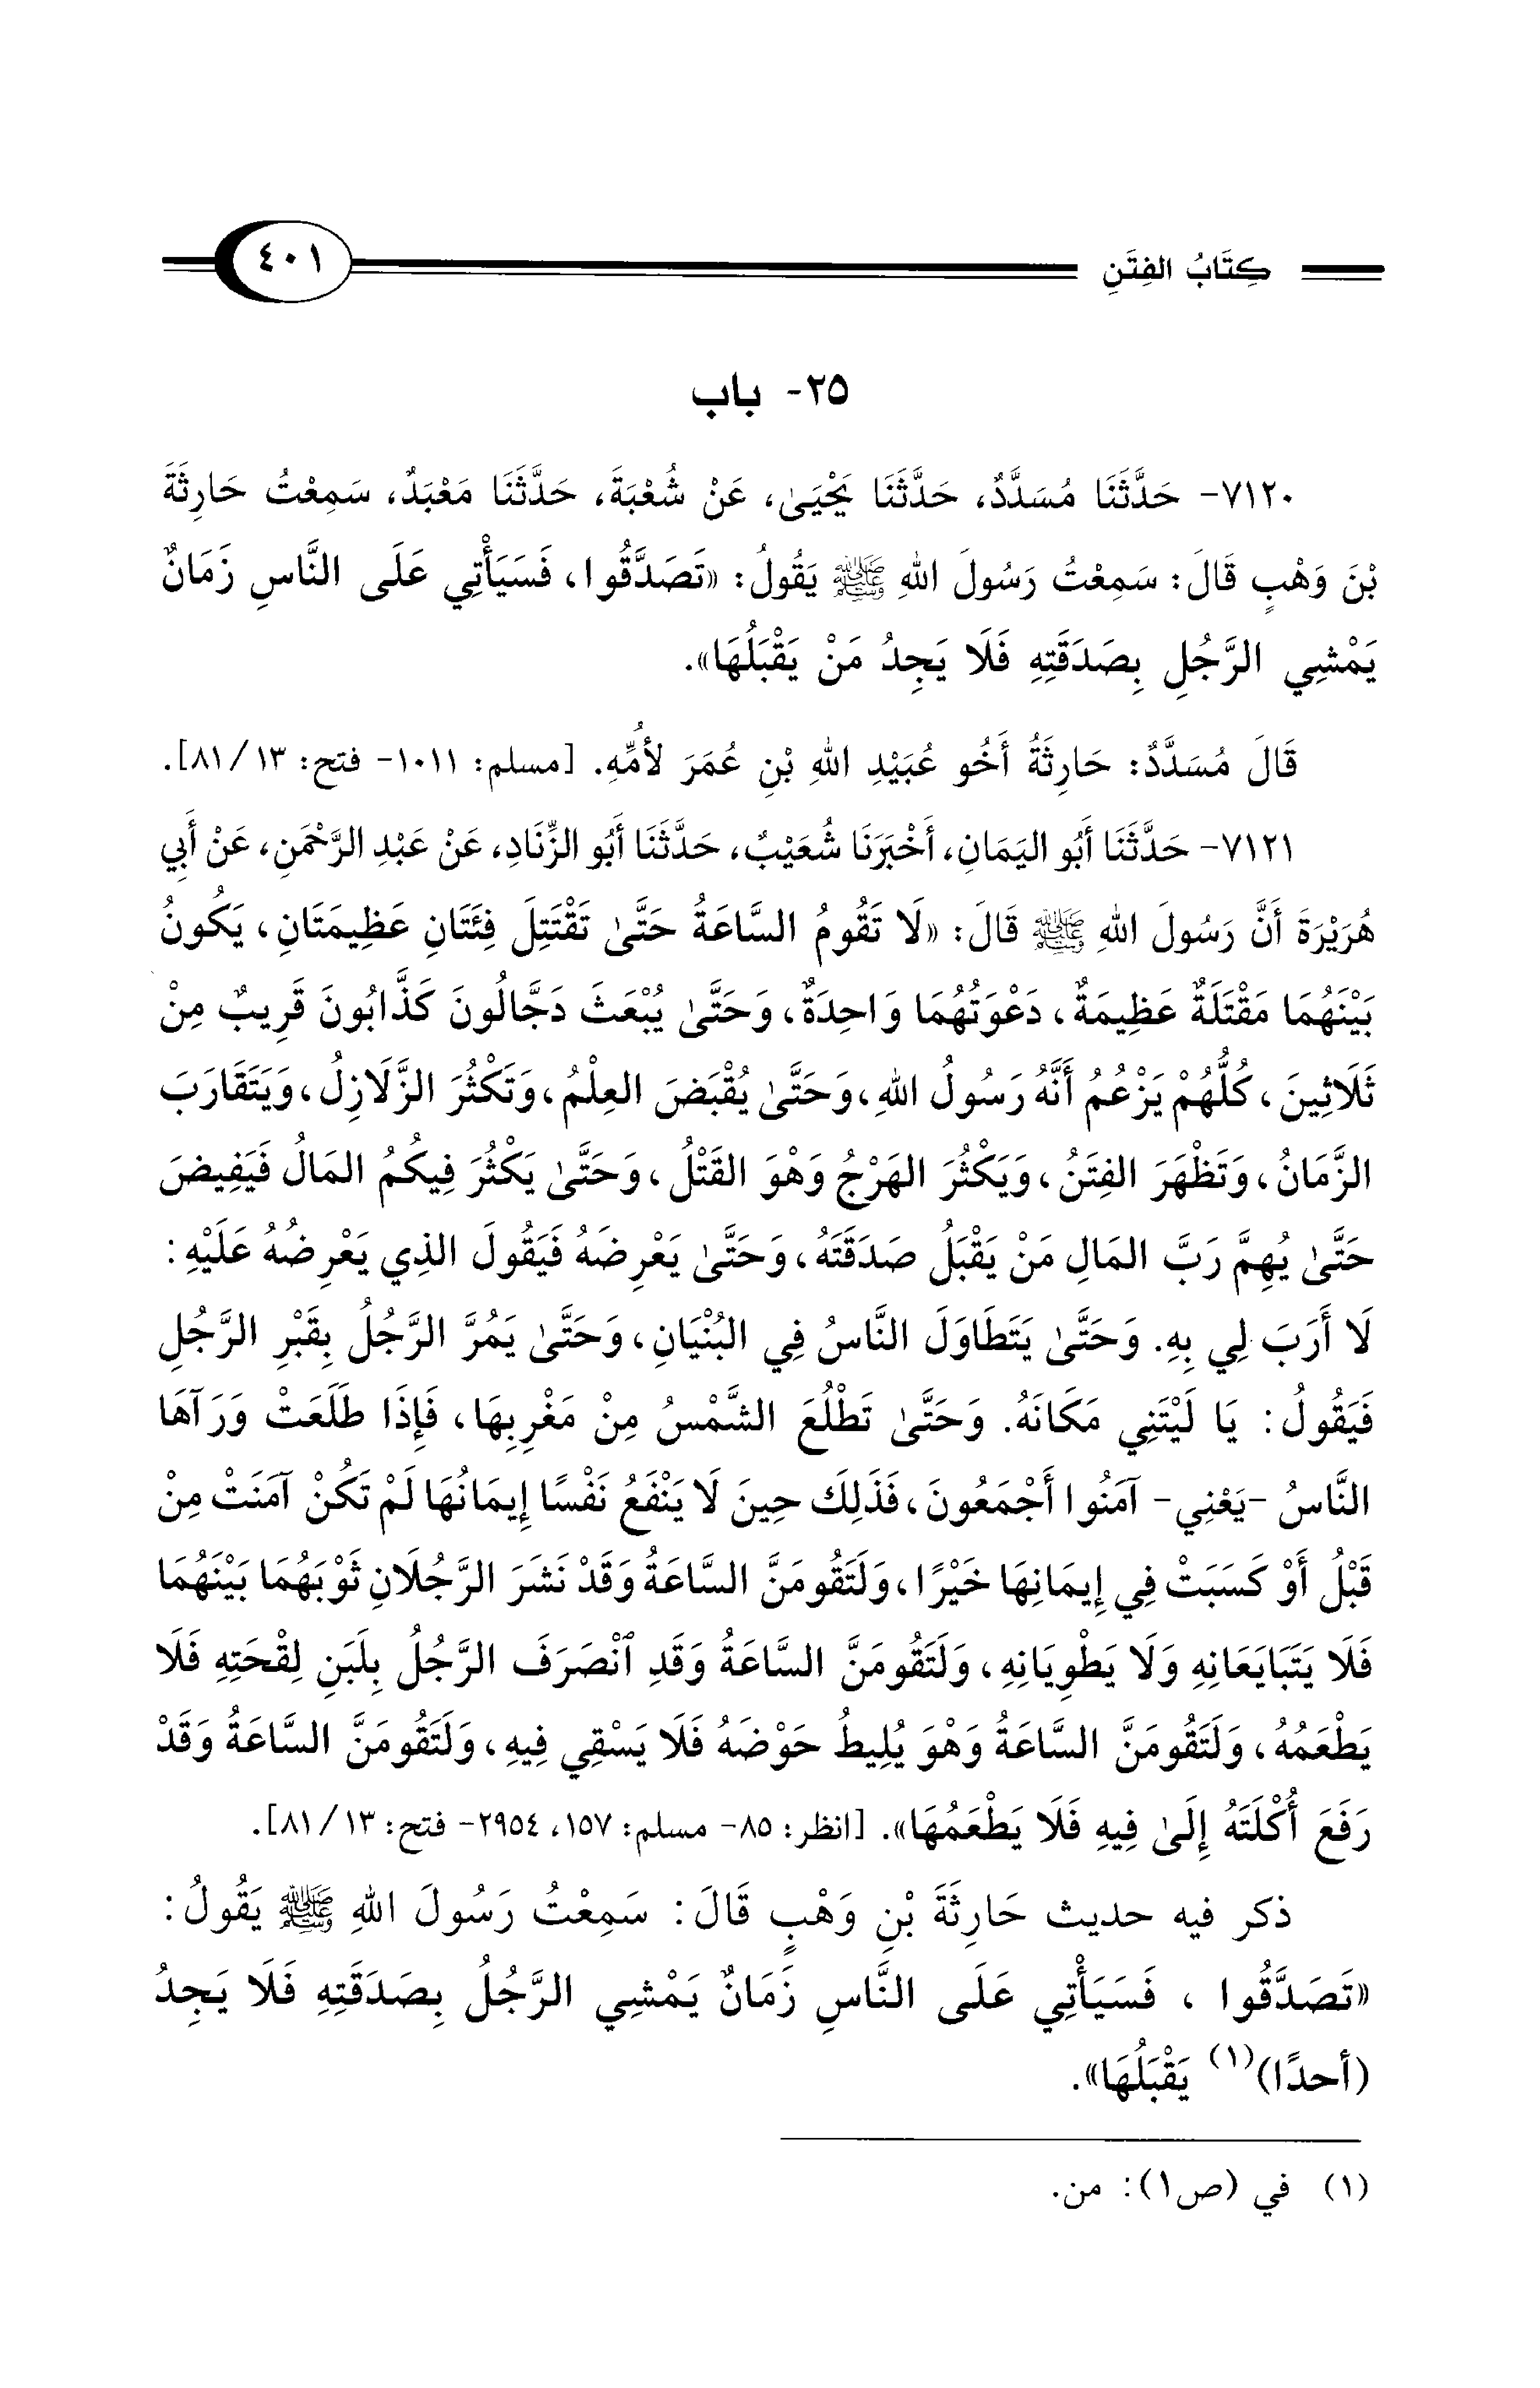 كِتَابُ الفِتَنِ ٤٠١
٢٥- باب
٧١٢٠- حَدَّثَنَا مُسَدَّدٌ، حَدَّثَنَا يَحْيَىٰ، عَنْ شُعْبَةَ، حَدَّثَنَا مَعْبَدٌ، سَمِعْتُ حَارِثَةَ
بْنَ وَهْبٍ قَالَ: سَمِعْتُ رَسُولَ اللهِ ﷺ يَقُولُ: «تَصَدَّقُوا، فَسَيَأْتِي عَلَى النَّاسِ زَمَانٌ
يَمْشِي الرَّجُلِ بِصَدَقَتِهِ فَلَا يَجِدُ مَنْ يَقْبَلُهَا».
قَالَ مُسَدَّدٌ: حَارِثَةُ أَخُو عُبَيْدِ اللهِ بْنِ عُمَرَ لأُمِّهِ. [مسلم: ١٠١١- فتح: ١٣/ ٨١].
٧١٢١- حَدَّثَنَا أَبُو اليَمَانِ، أَخْبَرَنَا شُعَيْبٌ، حَدَّثَنَا أَبُو الزِّنَادِ، عَنْ عَبْدِ الرَّحْمَنِ، عَنْ أَبِي
هُرَيْرَةَ أَنَّ رَسُولَ اللهِ ﷺ قَالَ: «لَا تَقُومُ السَّاعَةُ حَتَّىٰ تَقْتَتِلَ فِئَتَانِ عَظِيمَتَانِ، يَكُونُ
بَيْنَهُمَا مَقْتَلَةٌ عَظِيمَةٌ، دَعْوَتُهُمَا وَاحِدَةٌ، وَحَتَّىٰ يُبْعَثَ دَجَّالُونَ كَذَّابُونَ قَرِيبٌ مِنْ
ثَلَاثِينَ، كُلُّهُمْ يَزْعُمُ أَنَّهُ رَسُولُ اللهِ، وَحَتَّىٰ يُقْبَضَ العِلْمُ، وَتَكْثُرَ الزَّلَازِلُ، وَيَتَقَارَبَ
الزَّمَانُ، وَتَظْهَرَ الفِتَنُ، وَيَكْثُرَ الهَرْجُ وَهْوَ القَتْلُ، وَحَتَّىٰ يَكْثُرَ فِيكُمُ المَالُ فَيَفِيضَ
حَتَّىٰ يُهِمَّ رَبَّ المَالِ مَنْ يَقْبَلُ صَدَقَتَهُ، وَحَتَّىٰ يَعْرِضَهُ فَيَقُولَ الذِي يَعْرِضُهُ عَلَيْهِ:
لَا أَرَبَ لِي بِهِ. وَحَتَّىٰ يَتَطَاوَلَ النَّاسُ فِي البُنْيَانِ، وَحَتَّىٰ يَمُرَّ الرَّجُلُ بِقَبْرِ الرَّجُلِ
فَيَقُولُ: يَا لَيْتَنِي مَكَانَهُ. وَحَتَّىٰ تَطْلُعَ الشَّمْسُ مِنْ مَغْرِبِهَا، فَإِذَا طَلَعَتْ وَرَآهَا
النَّاسُ -يَعْنِي- آمَنُوا أَجْمَعُونَ، فَذَلِكَ حِينَ لَا يَنْفَعُ نَفْسًا إِيمَانُهَا لَمْ تَكُنْ آمَنَتْ مِنْ
قَبْلُ أَوْ كَسَبَتْ فِي إِيمَانِهَا خَيْرًا، وَلَتَقُومَنَّ السَّاعَةُ وَقَدْ نَشَرَ الرَّجُلَانِ ثَوْبَهُمَا بَيْنَهُمَا
فَلَا يَتَبَايَعَانِهِ وَلَا يَطْوِيَانِهِ، وَلَتَقُومَنَّ السَّاعَةُ وَقَدِ ٱنْصَرَفَ الرَّجُلُ بِلَبَنِ لِقْحَتِهِ فَلَا
يَطْعَمُهُ، وَلَتَقُومَنَّ السَّاعَةُ وَهْوَ يُلِيطُ حَوْضَهُ فَلَا يَسْقِي فِيهِ، وَلَتَقُومَنَّ السَّاعَةُ وَقَدْ
رَفَعَ أُكْلَتَهُ إِلَىٰ فِيهِ فَلَا يَطْعَمُهَا». [انظر: ٨٥- مسلم: ١٥٧، ٢٩٥٤- فتح: ١٣/ ٨١].
ذكر فيه حديث حَارِثَةَ بْنِ وَهْبٍ قَالَ: سَمِعْتُ رَسُولَ اللهِ ﷺ يَقُولُ:
«تَصَدَّقُوا ، فَسَيَأْتِي عَلَى النَّاسِ زَمَانٌ يَمْشِي الرَّجُلُ بِصَدَقَتِهِ فَلَا يَجِدُ
(أحدًا)(١) يَقْبَلُهَا».
(١) في (ص١): من.